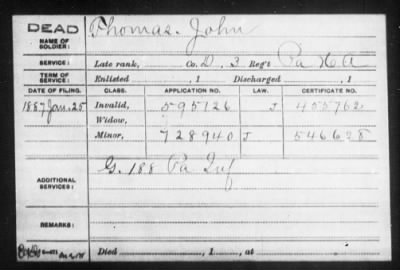 DEAD
NAME OF SOLDIER: Thomas. John
SERVICE: Late rank, Co. D, 3 Reg't Pa H A
TERM OF SERVICE: Enlisted , 1 Discharged , 1
DATE OF FILING. CLASS. APPLICATION NO. LAW. CERTIFICATE NO.
1887 Jan. 25 Invalid, 595126 J 455762
Widow,
Minor, 728940 J 546628
ADDITIONAL SERVICES: G. 188 Pa Inf
REMARKS:
Died , 1 , at